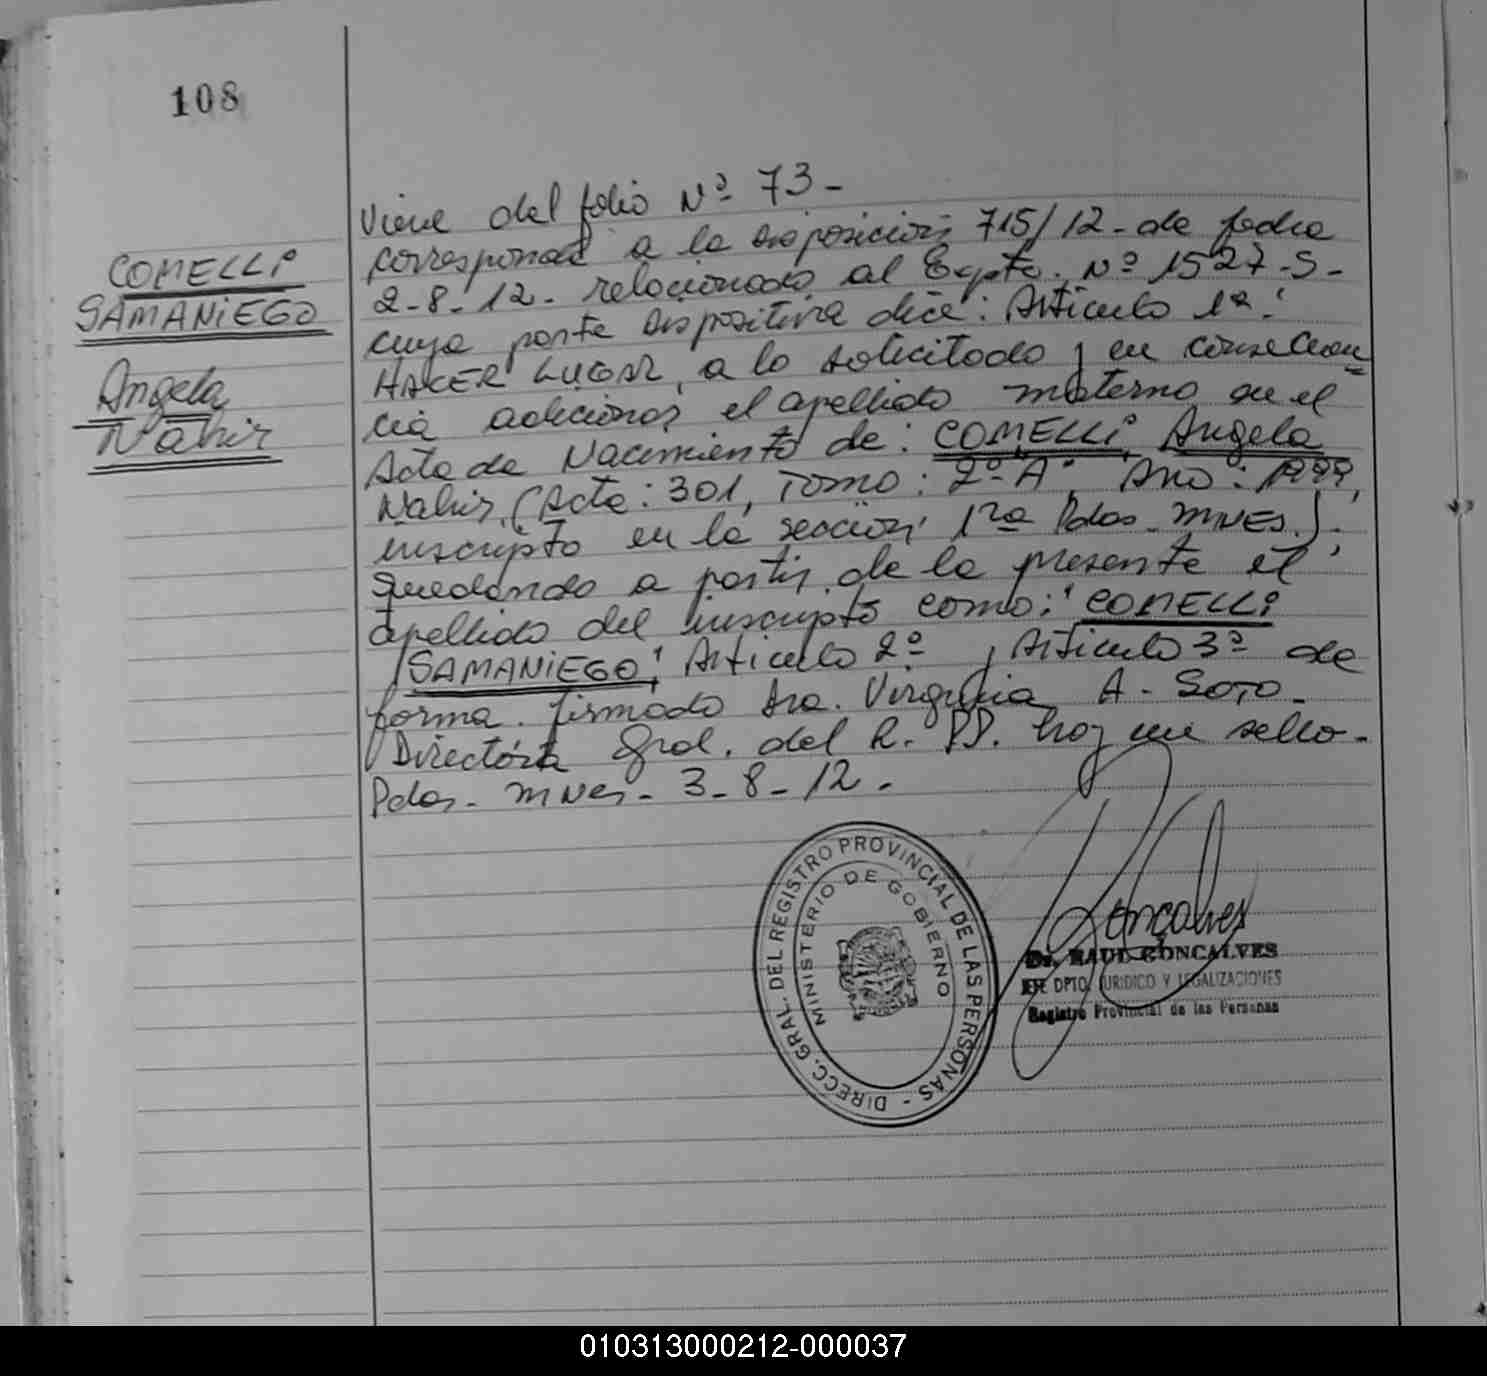 108
COMELLI
SAMANIEGO
Angela
Nahir
Viene del folio Nº 73 -
corresponde a la disposición 715/12 - de fecha
2-8-12 - relacionado al Expte. Nº 1527-S-
cuya parte dispositiva dice: Artículo 1º:
HACER LUGAR, a lo solicitado y en consecuen=
cia adicionar el apellido materno en el
Acta de Nacimiento de: COMELLI, Angela
Nahir, (Acta: 301, Tomo: 2º "A", Año: 1999,
inscripto en la sección 1ra Pdas - MNES.).
quedando a partir de la presente el
apellido del inscripto como: "COMELLI
SAMANIEGO" Artículo 2º, Artículo 3º de
forma. firmado Dra. Virginia A. SOTO -
Directora Gral. del R. PP. hay un sello -
Pdas - MNes - 3-8-12 -
DIRECC. GRAL. DEL REGISTRO PROVINCIAL DE LAS PERSONAS -
MINISTERIO DE GOBIERNO
Goncalves
Dr. RAUL GONCALVES
JEFE DPTO. JURIDICO Y LEGALIZACIONES
Registro Provincial de las Personas
010313000212-000037